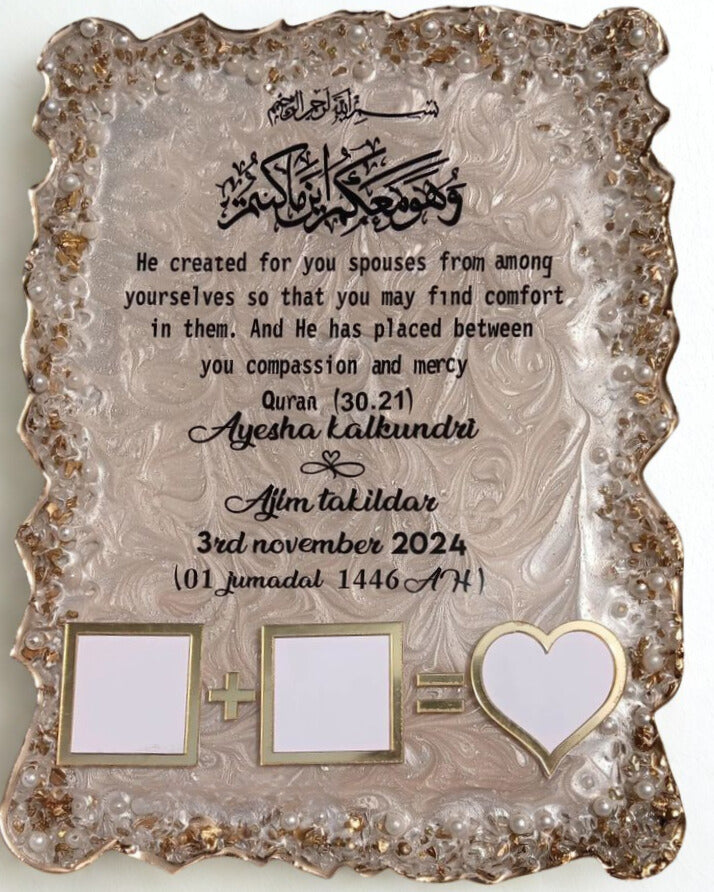 بسم الله الرحمن الرحيم
وَهُوَ مَعَكُمْ أَيْنَ مَا كُنْتُمْ
He created for you spouses from among
yourselves so that you may find comfort
in them. And He has placed between
you compassion and mercy
Quran (30.21)
Ayesha kalkundri
Ajim takildar
3rd november 2024
(01 jumadal 1446 AH)
+ =